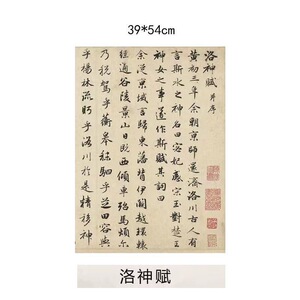 39*54cm
洛神賦 并序
黃初三年余朝京師還濟洛川古人有
言斯水之神名曰宓妃感宋玉對楚王
神女之事遂作斯賦其詞曰
余從京域言歸東藩背伊闕越轘轅
經通谷陵景山日既西傾車殆馬煩尔
乃稅駕乎蘅皋秣駟乎芝田容與
乎楊林流眄乎洛川於是精移神
洛神赋